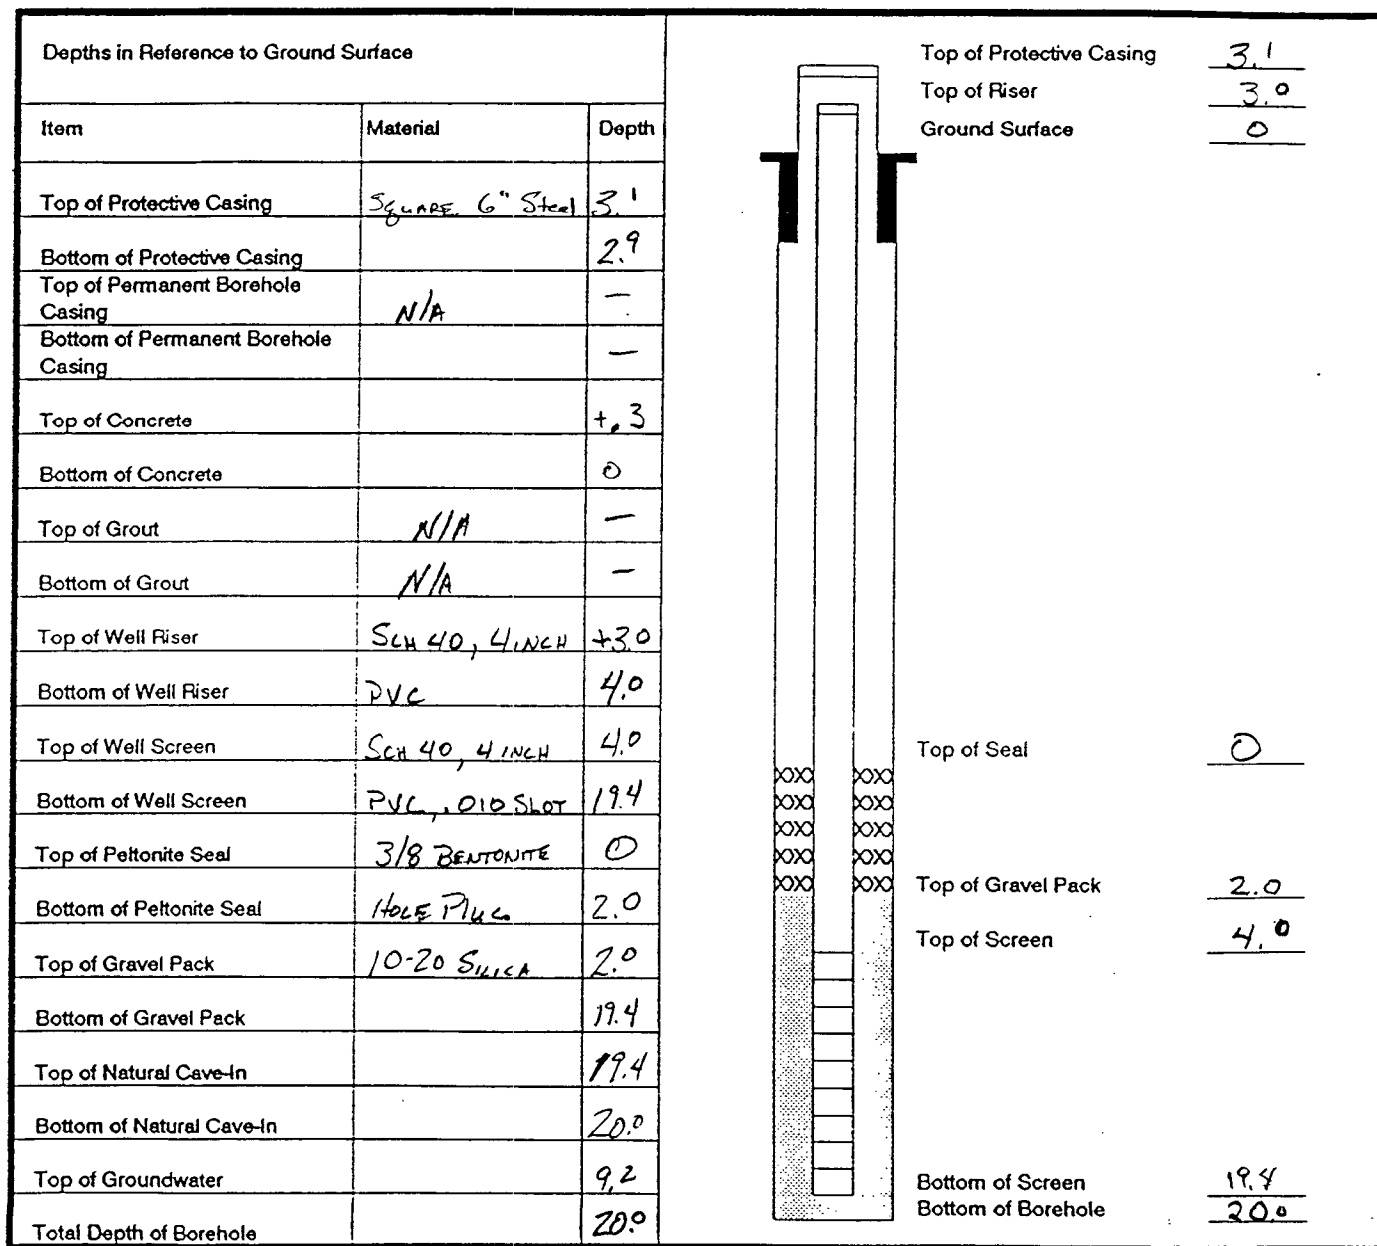 Depths in Reference to Ground Surface
Item Material Depth
Top of Protective Casing SQUARE 6" Steel 3.1
Bottom of Protective Casing 2.9
Top of Permanent Borehole
Casing N/A —
Bottom of Permanent Borehole
Casing —
Top of Concrete +.3
Bottom of Concrete 0
Top of Grout N/A —
Bottom of Grout N/A —
Top of Well Riser SCH 40, 4 INCH +3.0
Bottom of Well Riser PVC 4.0
Top of Well Screen SCH 40, 4 INCH 4.0
Bottom of Well Screen PVC, .010 SLOT 19.4
Top of Peltonite Seal 3/8 BENTONITE 0
Bottom of Peltonite Seal HOLE Plug 2.0
Top of Gravel Pack 10-20 SILICA 2.0
Bottom of Gravel Pack 19.4
Top of Natural Cave-In 19.4
Bottom of Natural Cave-In 20.0
Top of Groundwater 9.2
Total Depth of Borehole 20.0
Top of Protective Casing 3.1
Top of Riser 3.0
Ground Surface 0
Top of Seal 0
Top of Gravel Pack 2.0
Top of Screen 4.0
Bottom of Screen 19.4
Bottom of Borehole 20.0